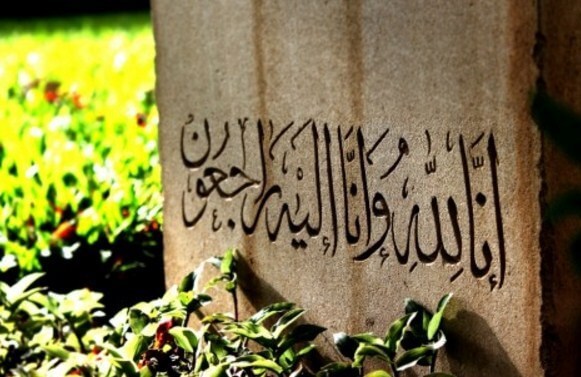 إنّا للّه وَإنّا إليه راجعون